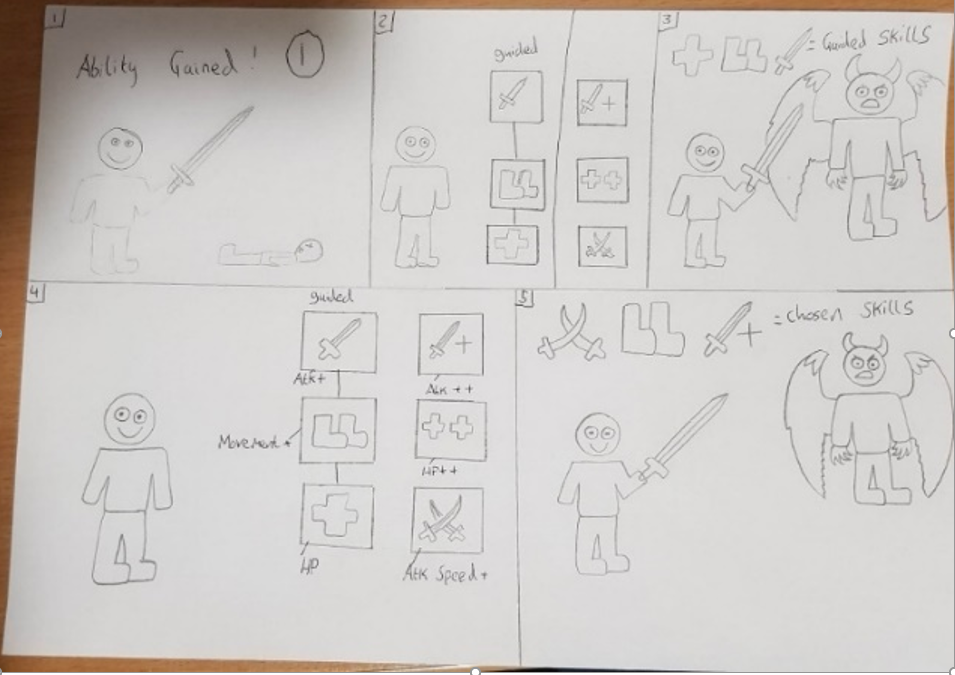 1
Ability Gained! 1
2
guided
3
= Guided Skills
4
guided
Atk+
Atk++
Movement+
HP++
HP
Atk Speed+
5
= chosen Skills